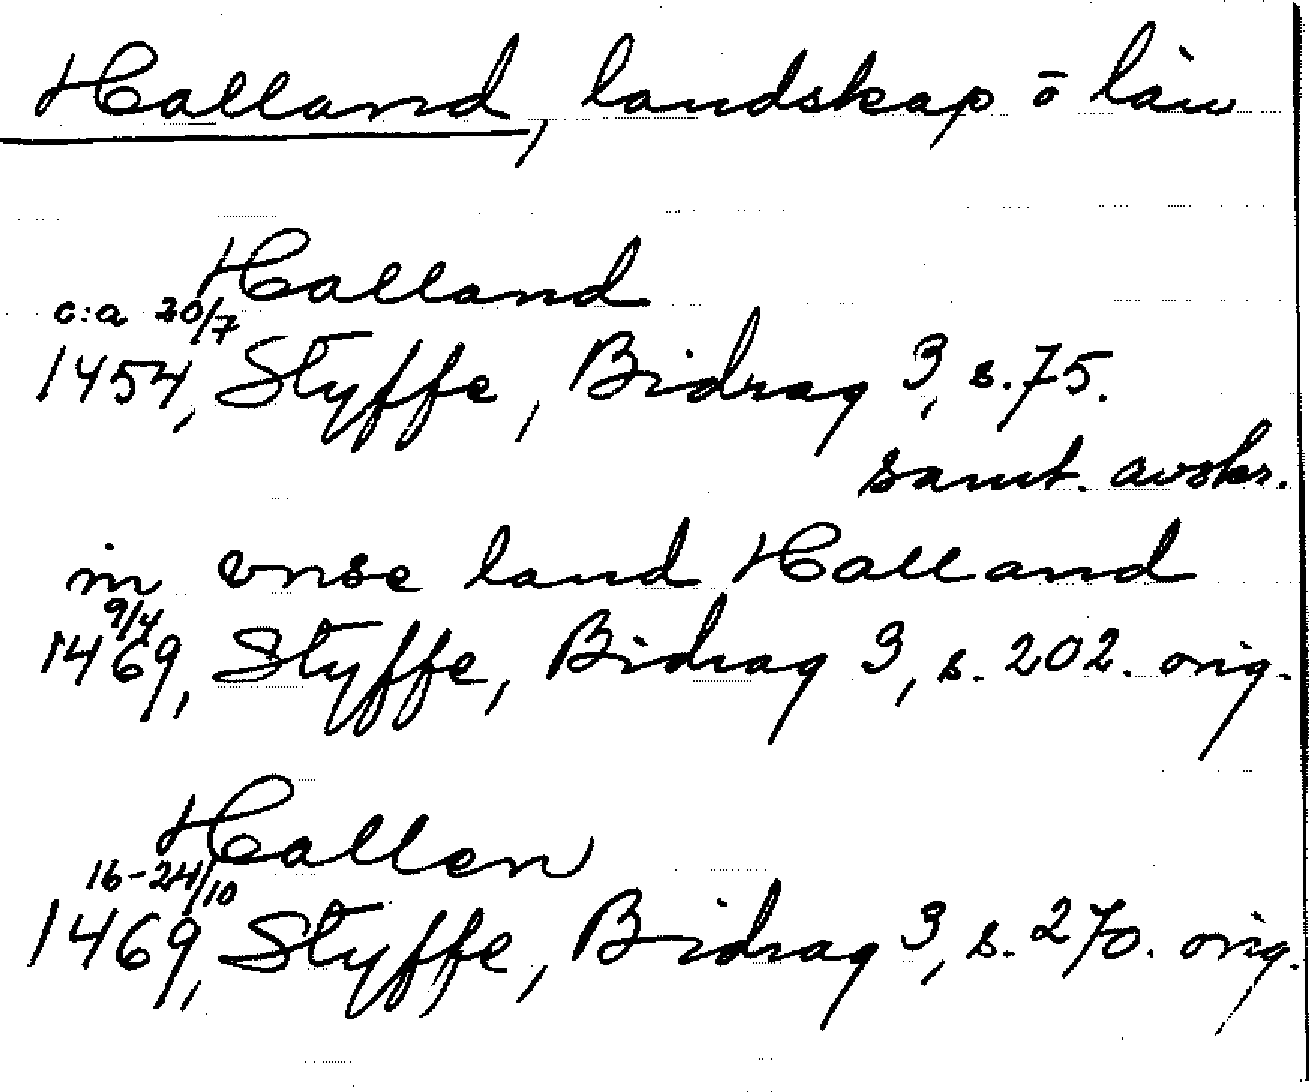 Halland, landskap ō län
Halland
c:a 20/7
1454, Styffe, Bidrag 3, s. 75.
samt. avskr.
in vnse land Halland
9/4
1469, Styffe, Bidrag 3, s. 202. orig.
Hallen
16-24/10
1469, Styffe, Bidrag 3, s. 270. orig.